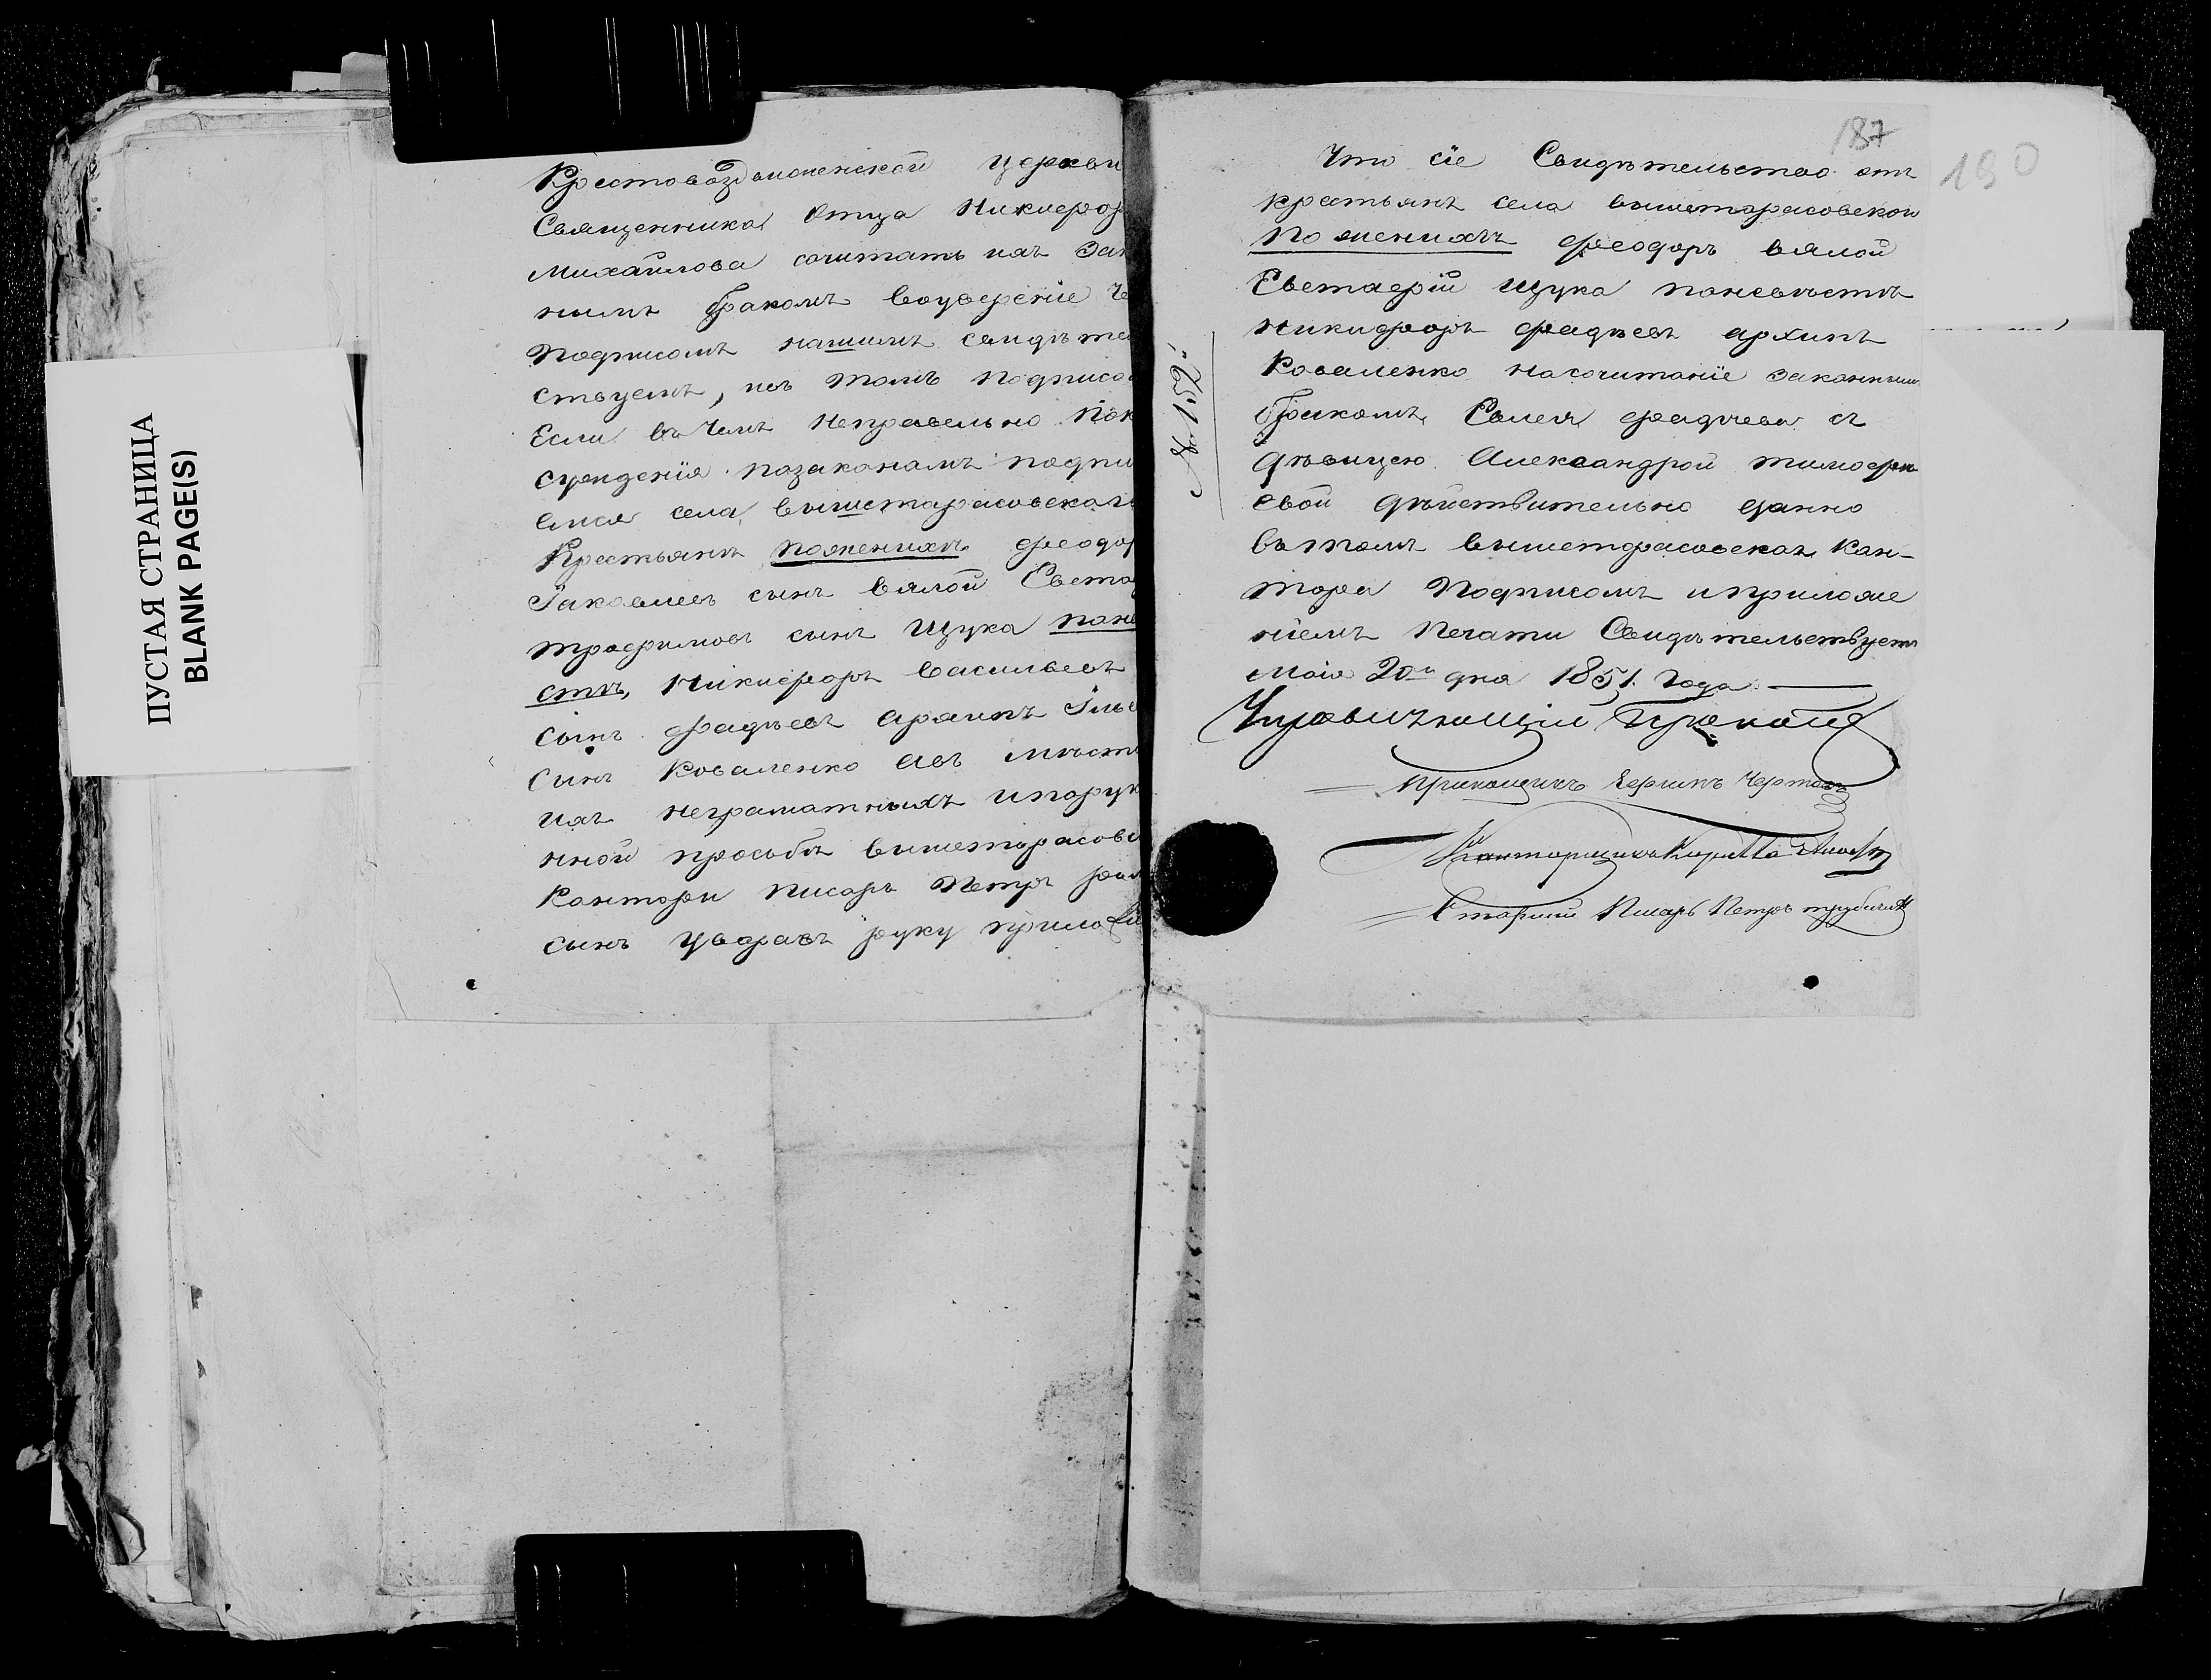 ПУСТАЯ СТРАНИЦА
BLANK PAGE(S)
Крестовоздвиженской церкви
Священника Отца Никифор
Михайлова сочитать ихъ Зак
нымъ браком воуверение че
подписомъ нашимъ свидѣтел
ствуемъ, ивъ томъ подписо
Если въ чемъ неправельно пок
суждения позаконамъ подпи
емся села вышетарасовскаго
Крестьянъ пожениху Феодор
Iаковлевъ сынъ вялой Евста
трофимовъ сынъ Щука поне
стѣ, Никифоръ васильевъ
сынъ фадѣевъ Архипъ Iлье
сынъ Коваленко Авъ мѣсто
ихъ неграматныхъ ипорук
ной прозбѣ вышетарасовс
Канторы писарь Петръ
сынъ руку приложи
187
190
Что сие Свидѣтельство отъ
крестьянъ села вышетарасовской
По женихѣ Феодоръ вялой
Евстафий Щука поневѣстѣ
никифоръ фадѣевъ архипъ
Коваленко насочитание законнымъ
браком фадѣева съ
дѣвицею Александрой тимофѣ
евой дѣйствительно данно
въ томъ вышетарасовская кан-
тора Подписомъ иприложе
ниемъ печати Свидѣтельствуетъ
Маiя 20го дня 1851. Года.
Управляющий
Прикащикъ
Канторщикъ
Старший Писарь Петръ